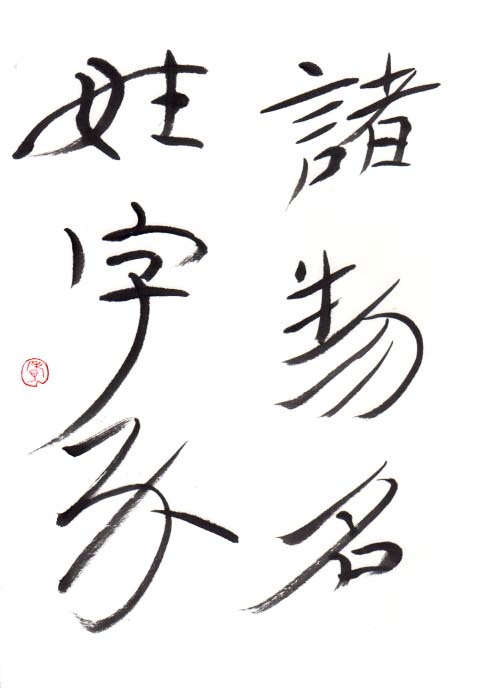 諸物名
姓字分